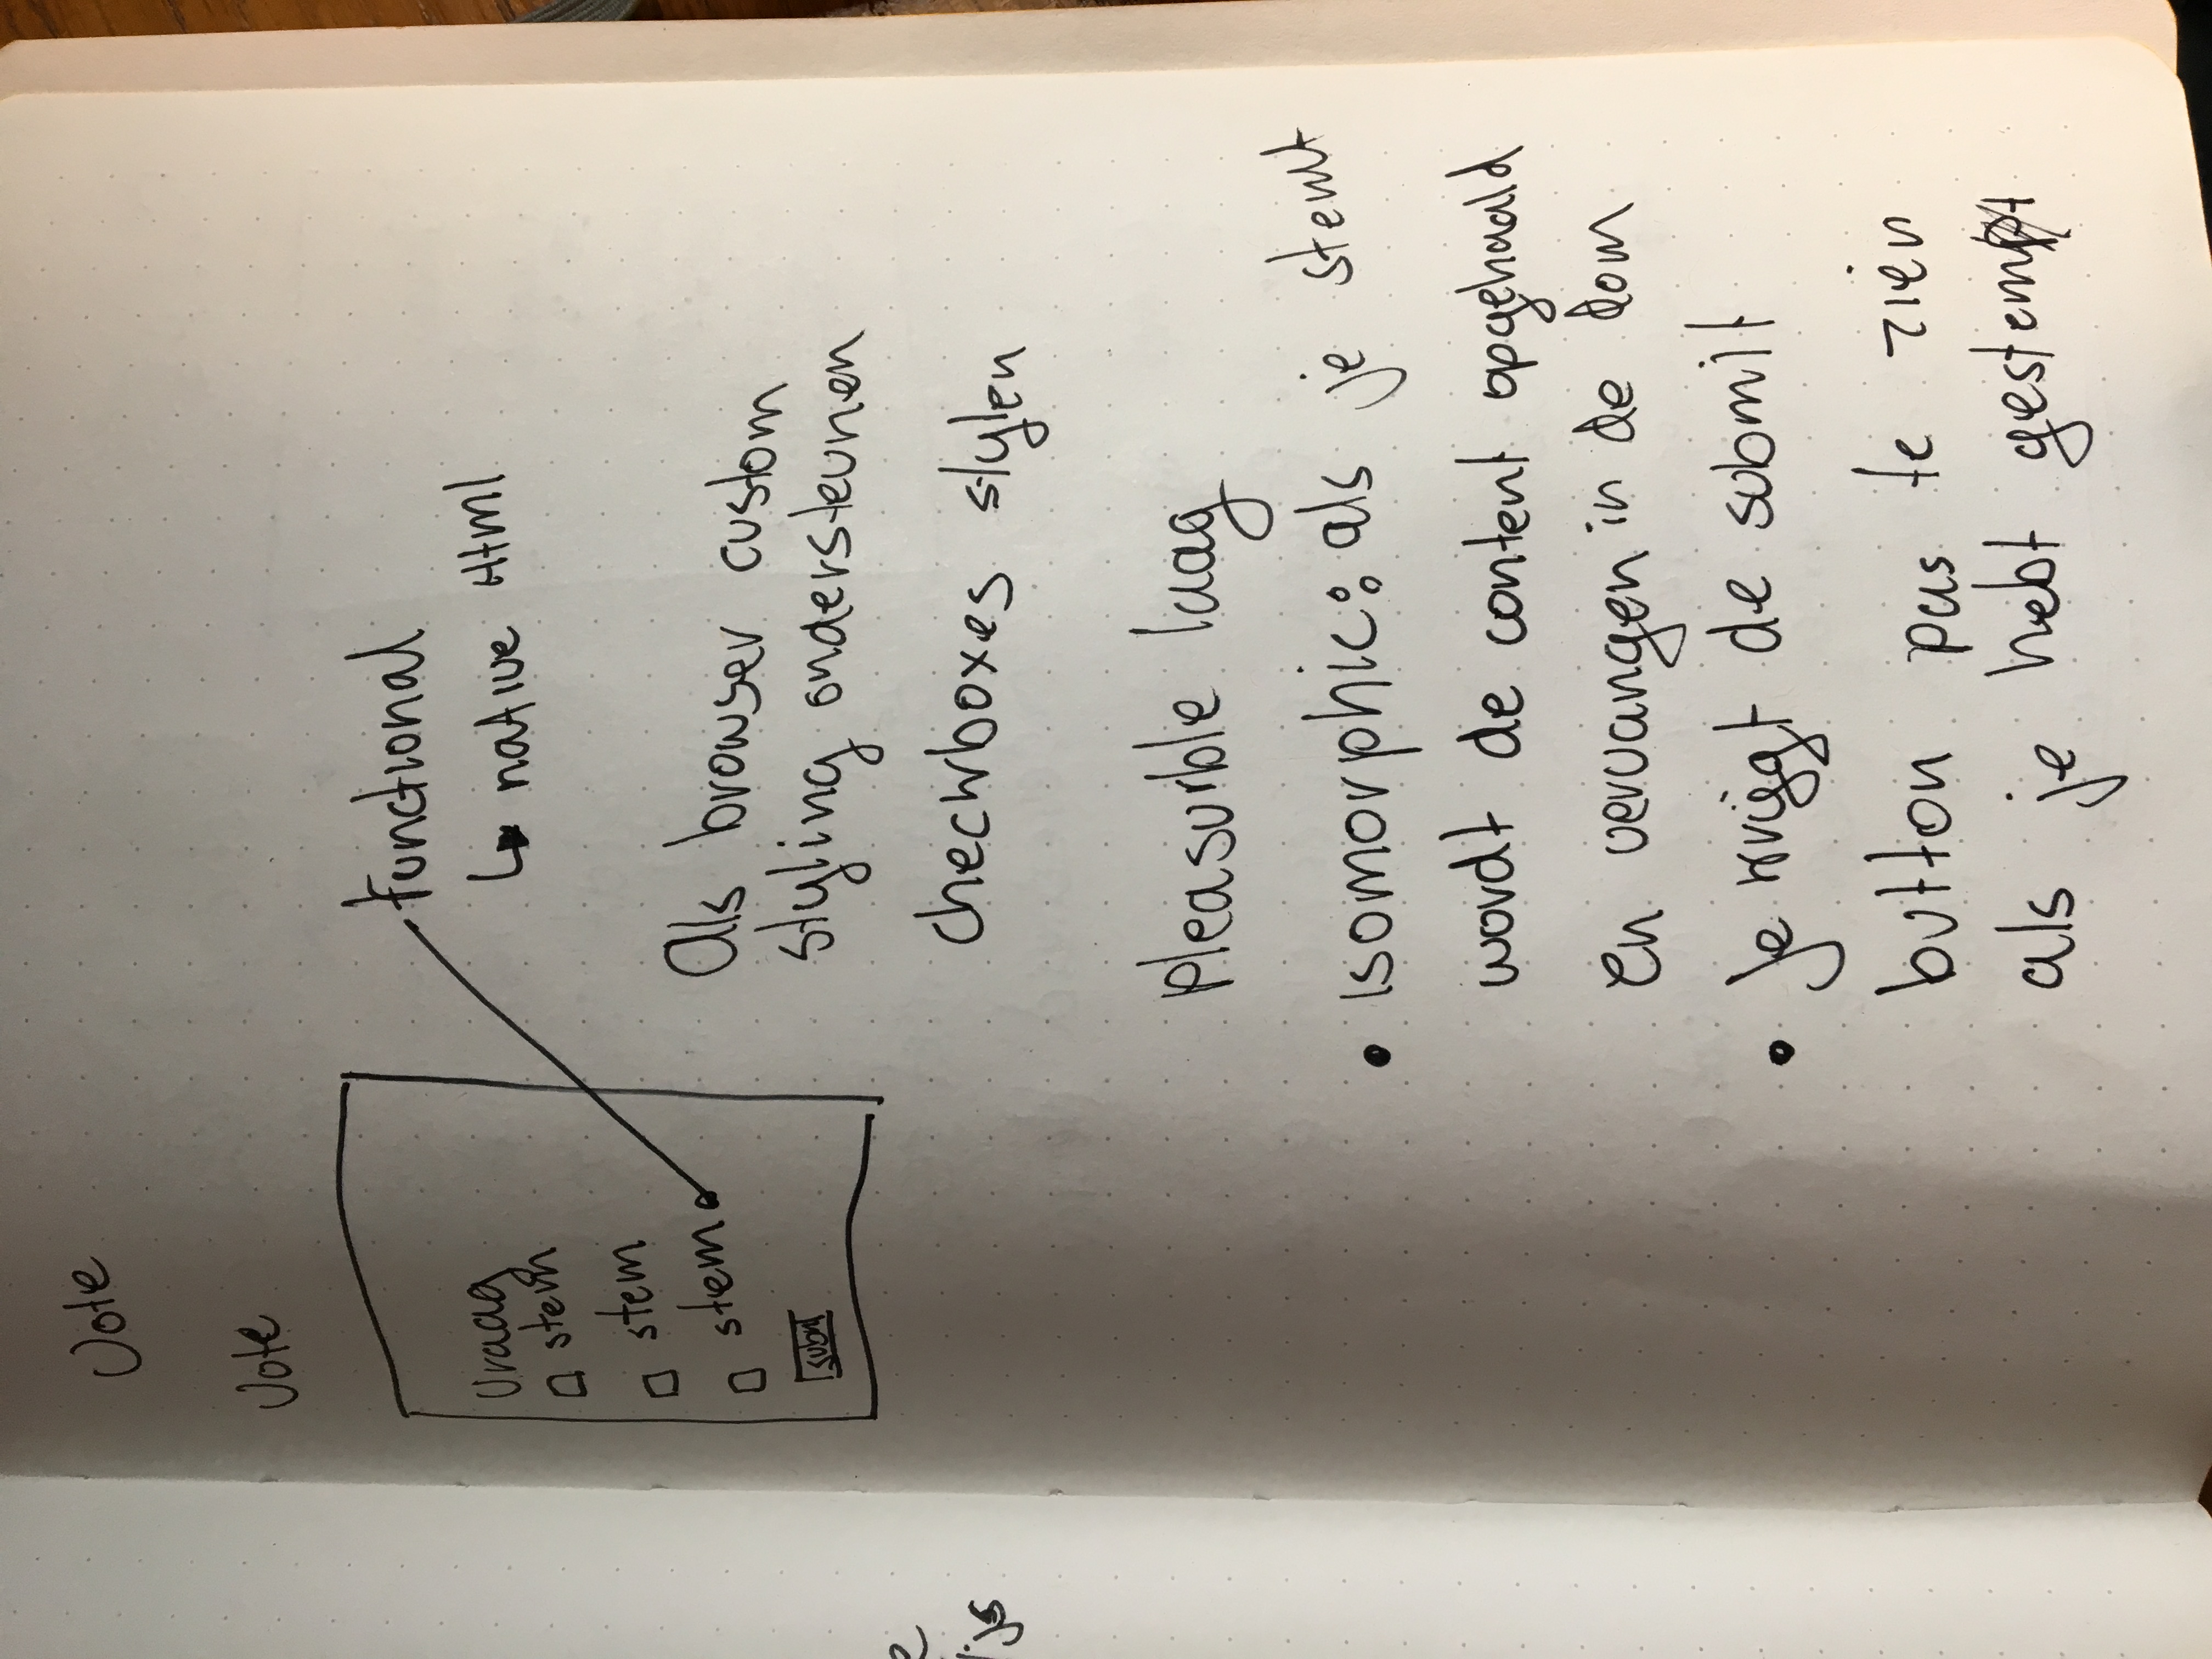 Vote
Vote
Vraag
stem
stem
stem
submit
functional
native Html
Als browser custom
styling ondersteunen
checkboxes stylen
Pleasurble laag
• isomorphic: als je stemt
wordt de content opgehaald
en vervangen in de dom
• je krijgt de submit
button pas te zien
als je hebt gestemt
js